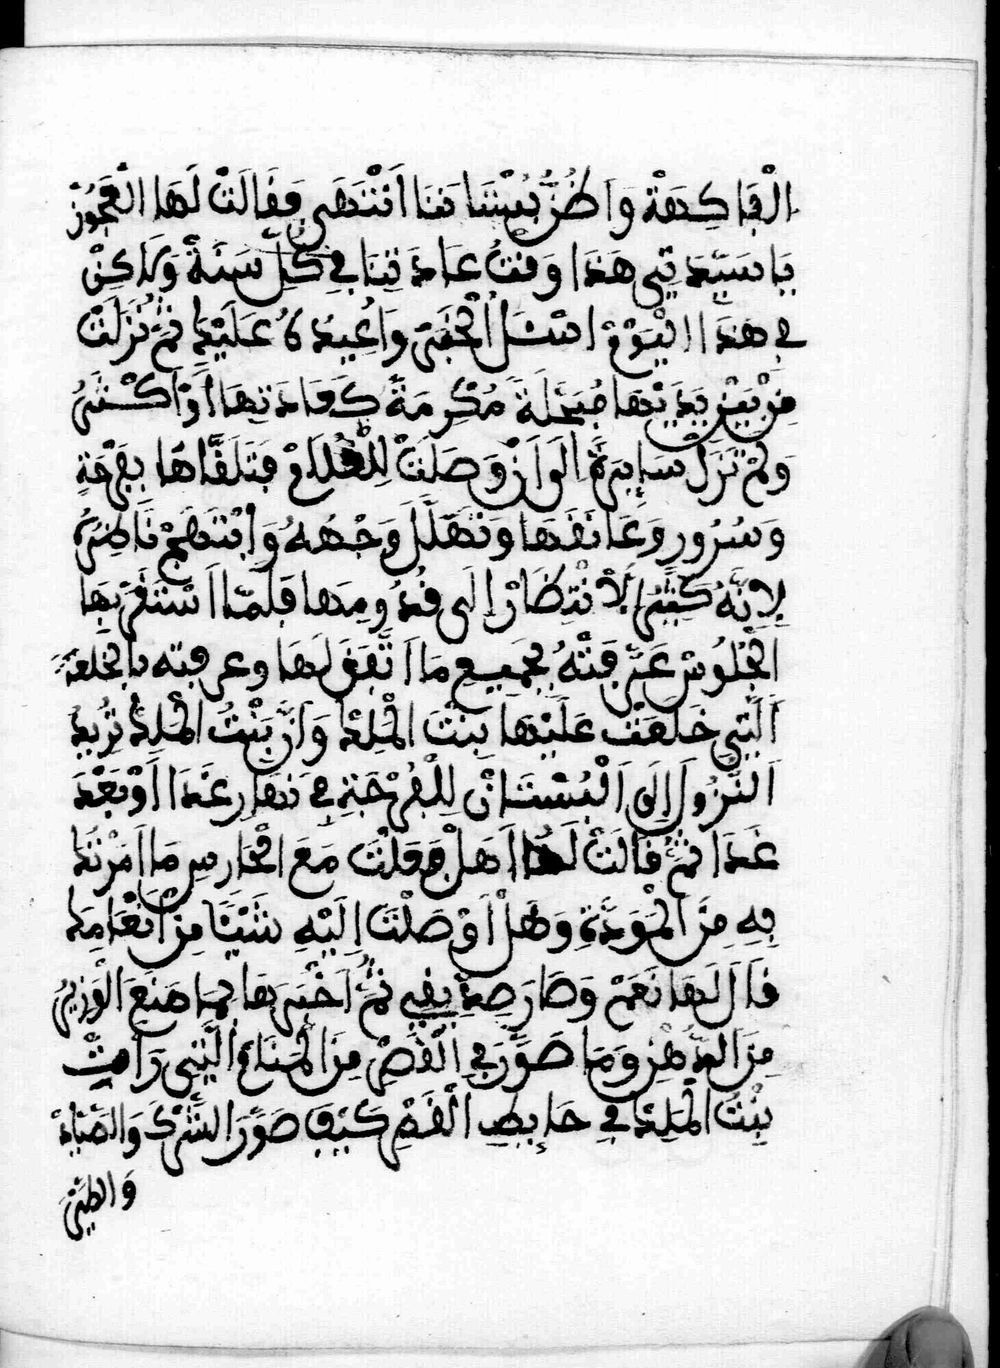 الْفَاكِهَة وَاطُرّ بُسْتَاننَا انْتَهَى فَقَالَتْ لَهَا الْعَجُوزْ
يَا سَيِّدَتِي هَذَا وَقْتُ عَادَتِنَا فِي كُلِّ سَنَةْ وَلَاكِنْ
فِي هَذَا الْيَوْمْ ارْسَلَ الْخَفَى وَاعِيدُهُ عَلَيْكَ ثُمَّ نَزَلَتْ
مِنْ بَيْنِ يَدَيْهَا مُبَجَّلَةً مُكْرِمَةً كَعَادَتِهَا أَوْ أَكْثَرُ
وَلَمْ تَزَلْ سَايِرَةً الَى اَنْ وَصَلَتْ لِلْغُلَامْ فَتَلَقَّاهَا بِفَرْحَةٍ
وَسُرُورٍ وَعَانَقَهَا وَتَهَلَّلَ وَجْهُهُ وَابْتَهَجْ نَاظِرُهُ
لِاَنَّهُ كَثِيرُ الْاِنْتِظَارْ اِلَى قُدُومِهَا فَلَمَّا اَسْتَقَرَّ بِهَا
الْجُلُوسْ عَرَّفَتْهُ بِجَمِيعِ مَا اَتَّفَقَ لَهَا وعرفته بالخلعة
اَلَّتِي خَلَعَتْ عَلَيْهَا بِنْتَ الْمَلِكْ وَاَنَّ بَنْتُ الْمَلِكْ تُرِيدُ
اَلنُّزُولَ اِلَى اَلْبُسْتَانْ لِلْفُرْجَةِ فِي نَهَارِ غَدَا اَوْ بَعْدَ
غَدَا ثُمَّ قَالَتْ لَهُ اَهَلْ فَعَلْتَ مَعَ الْحَارِسِ مَا اَمَرْتُكَ
بِهِ مِنَ الْمَوَدَّةِ وَهَلْ اَوْصَلْتَ اِلَيْهِ شَيْئًا مِنْ اِنْعَامِكَ
قَاَلَ لَهَا نَعَمْ وَصَارَ صَدِيقِي ثُمَّ اَخْبَرَهَا بِمَا صَنَعَ الْوَزِيرُ
مِنَ الدُّهْنِ وَمَا صَوَّرَ فِي الْقَصْرِ مِنَ الْمَنَامْ الَّتِي رَأَتْ
بِنْتُ الْمَلِكْ فِي حَايِطِ الْقَصْرِ كَيْفَ صَوَّرَ الشَّرَكَ وَالصَّيَّادْ
وَالطَّيْرَ